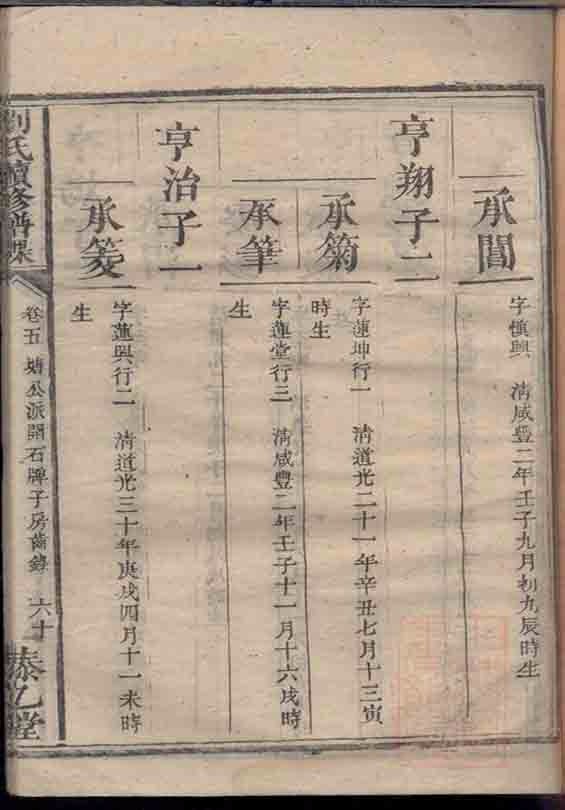 承閶
字㦤興 清咸豐二年壬子九月初九辰時生
亨翔子二
承蒟
字蓮坤行一 清道光二十一年辛丑七月十三寅
時生
承筆
字蓮堂行三 清咸豐二年壬子十一月十六戌時
生
亨治子一
承箋
字蓮興行二 清道光三十年庚戌四月十一未時
生
劉氏續修譜牒
卷五 公派開石牌子房齒錄 六十
泰乙堂